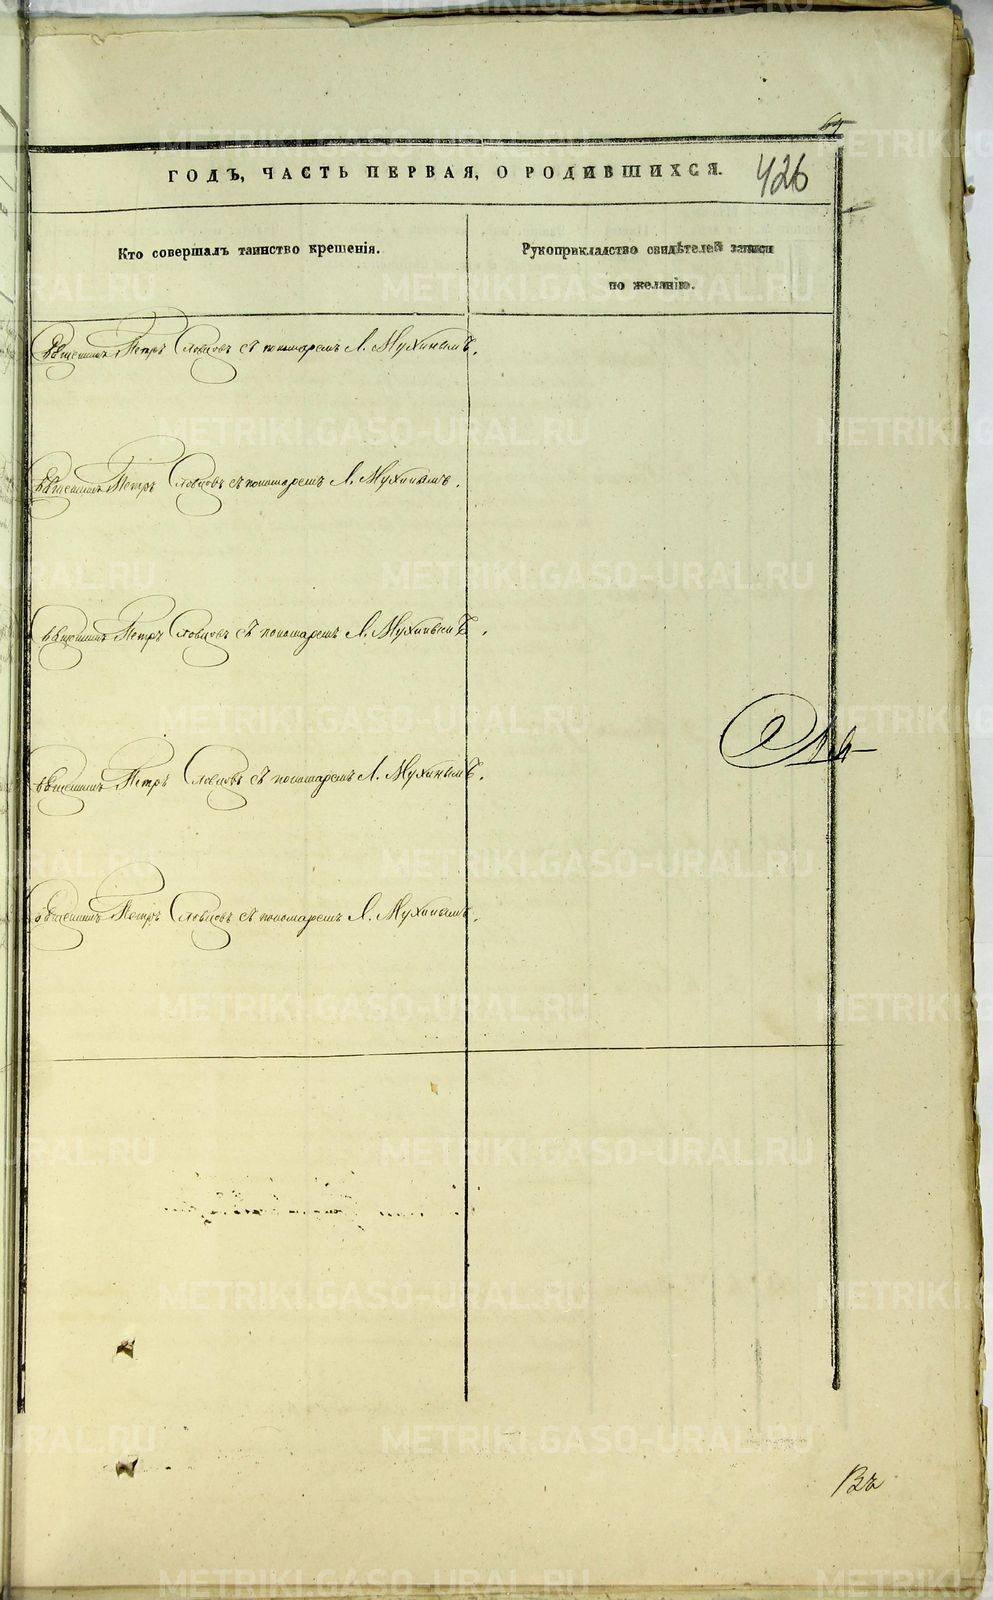 ГОДЪ, ЧАСТЬ ПЕРВАЯ, О РОДИВШИХСЯ.
426
Кто совершалъ таинство крещенія.
Рукоприкладство свидѣтелей записи
по желанію.
Священникъ Петръ Словцовъ съ пономаремъ А. Мухинымъ.
Священникъ Петръ Словцовъ съ пономаремъ А. Мухинымъ.
Священникъ Петръ Словцовъ съ пономаремъ А. Мухинымъ.
Священникъ Петръ Словцовъ съ пономаремъ А. Мухинымъ.
Священникъ Петръ Словцовъ съ пономаремъ А. Мухинымъ.
Въ
METRIKI.GASO-URAL.RU